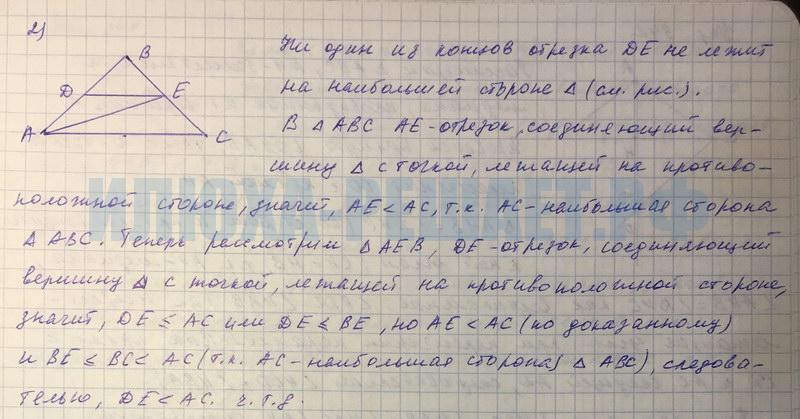 2)
Ни один из концов отрезка DE не лежит
на наибольшей стороне Δ (см. рис.).
B
D
E
A
C
В Δ ABC AE - отрезок, соединяющий вер-
шину Δ с точкой, лежащей на противо-
положной стороне, значит, AE < AC, т.к. AC - наибольшая сторона
Δ ABC. Теперь рассмотрим Δ AEB, DE - отрезок, соединяющий
вершину Δ с точкой, лежащей на противоположной стороне,
значит, DE ≤ AC или DE ≤ BE, но AE < AC (по доказанному)
и BE ≤ BC < AC (т.к. AC - наибольшая сторона Δ ABC), следова-
тельно, DE < AC. ч.т.д.
ИЛЮХА-РЕШАЕТ.РФ